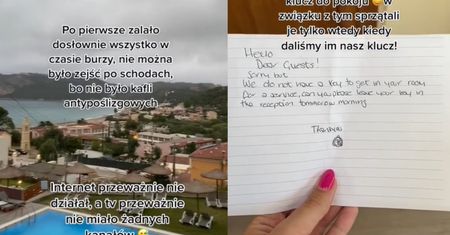 Po pierwsze zalało
dosłownie wszystko w
czasie burzy, nie można
było zejść po schodach,
bo nie było kafli
antypoślizgowych
Internet przeważnie nie
działał, a tv przeważnie
nie miało żadnych
kanałów 😅
klucz do pokoju w
związku z tym sprzątali
je tylko wtedy kiedy
daliśmy im nasz klucz!
Hello
Dear Guests!
Sorry but
We do not have a key to get in your room
for a service, can you please leave your key in
the reception tomorrow morning
Thank you